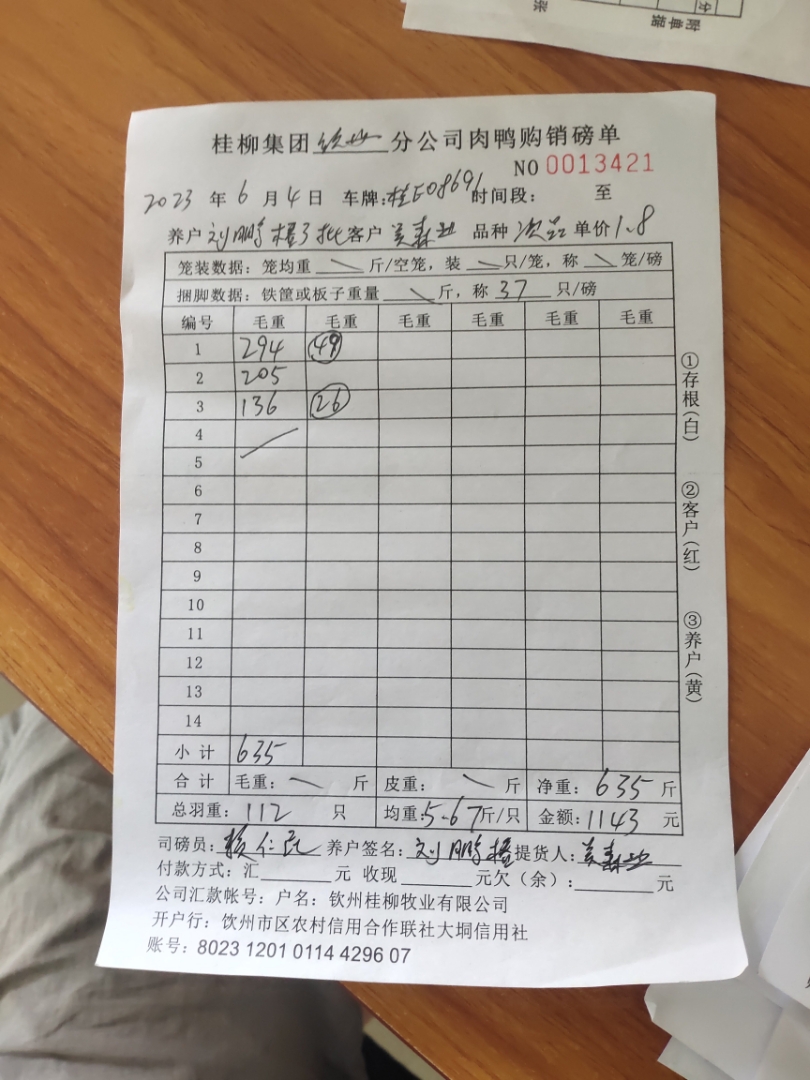 附单据 张
桂柳集团钦州分公司肉鸭购销磅单
NO 0013421
2023年6月4日 车牌:桂E08691 时间段: 至
养户 刘鹏 3批 客户 品种 次品 单价 1.8
笼装数据:笼均重 斤/空笼,装 只/笼,称 笼/磅
捆脚数据:铁筐或板子重量 斤,称 37 只/磅
编号 毛重 毛重 毛重 毛重 毛重 毛重
1 294 49
2 205
3 136 26
4
5
6
7
8
9
10
11
12
13
14
小计 635
合计 毛重: 斤 皮重: 斤 净重: 635 斤
总羽重: 112 只 均重: 5.67 斤/只 金额: 1143 元
司磅员: 养户签名: 刘鹏 提货人:
付款方式:汇 元 收现 元欠(余): 元
公司汇款帐号:户名:钦州桂柳牧业有限公司
开户行:钦州市区农村信用合作联社大垌信用社
账号:8023 1201 0114 4296 07
①存根(白)
②客户(红)
③养户(黄)